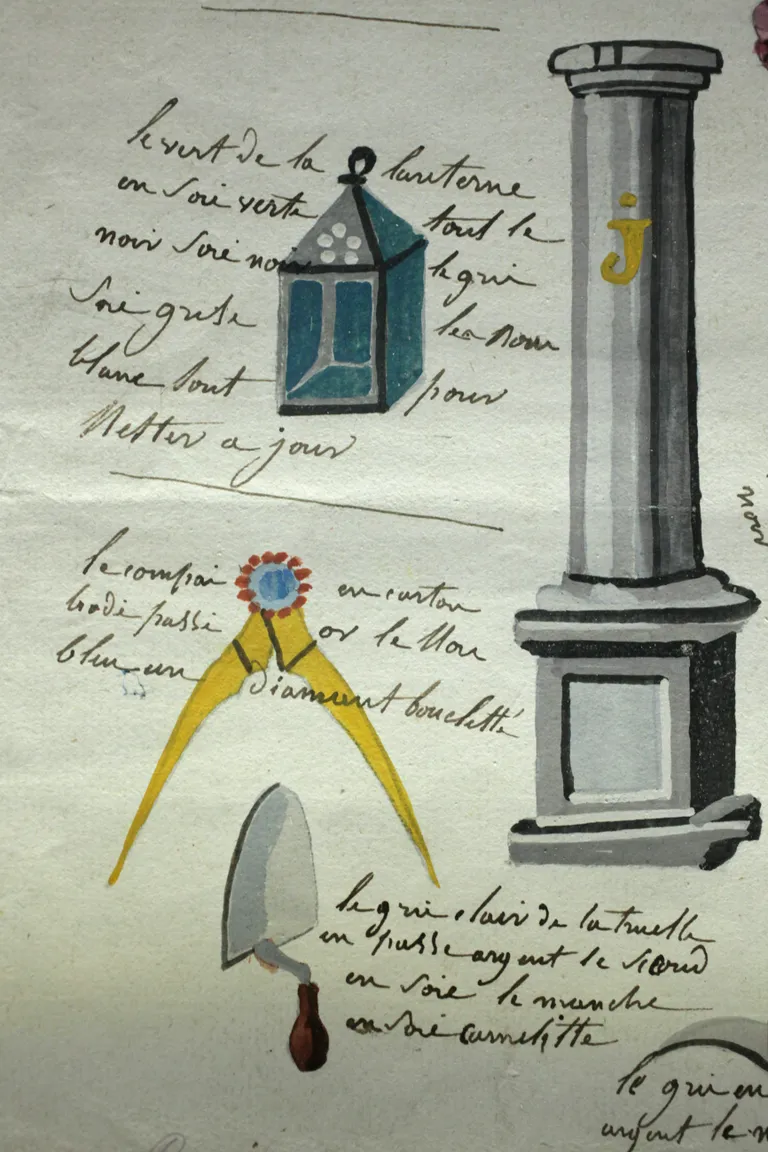 le vert de la lanterne
en Soie verte tout le
noir Soie noir le gris
Soie grise les nour
blanc tout pour
Metter a jour
j
le compas en carton
brodé passé or le
bleu un diamant bouclette
le gris clair de la truelle
en passe argent le
en Soie le manche
en Soie carmelitte
le gris en
argent le